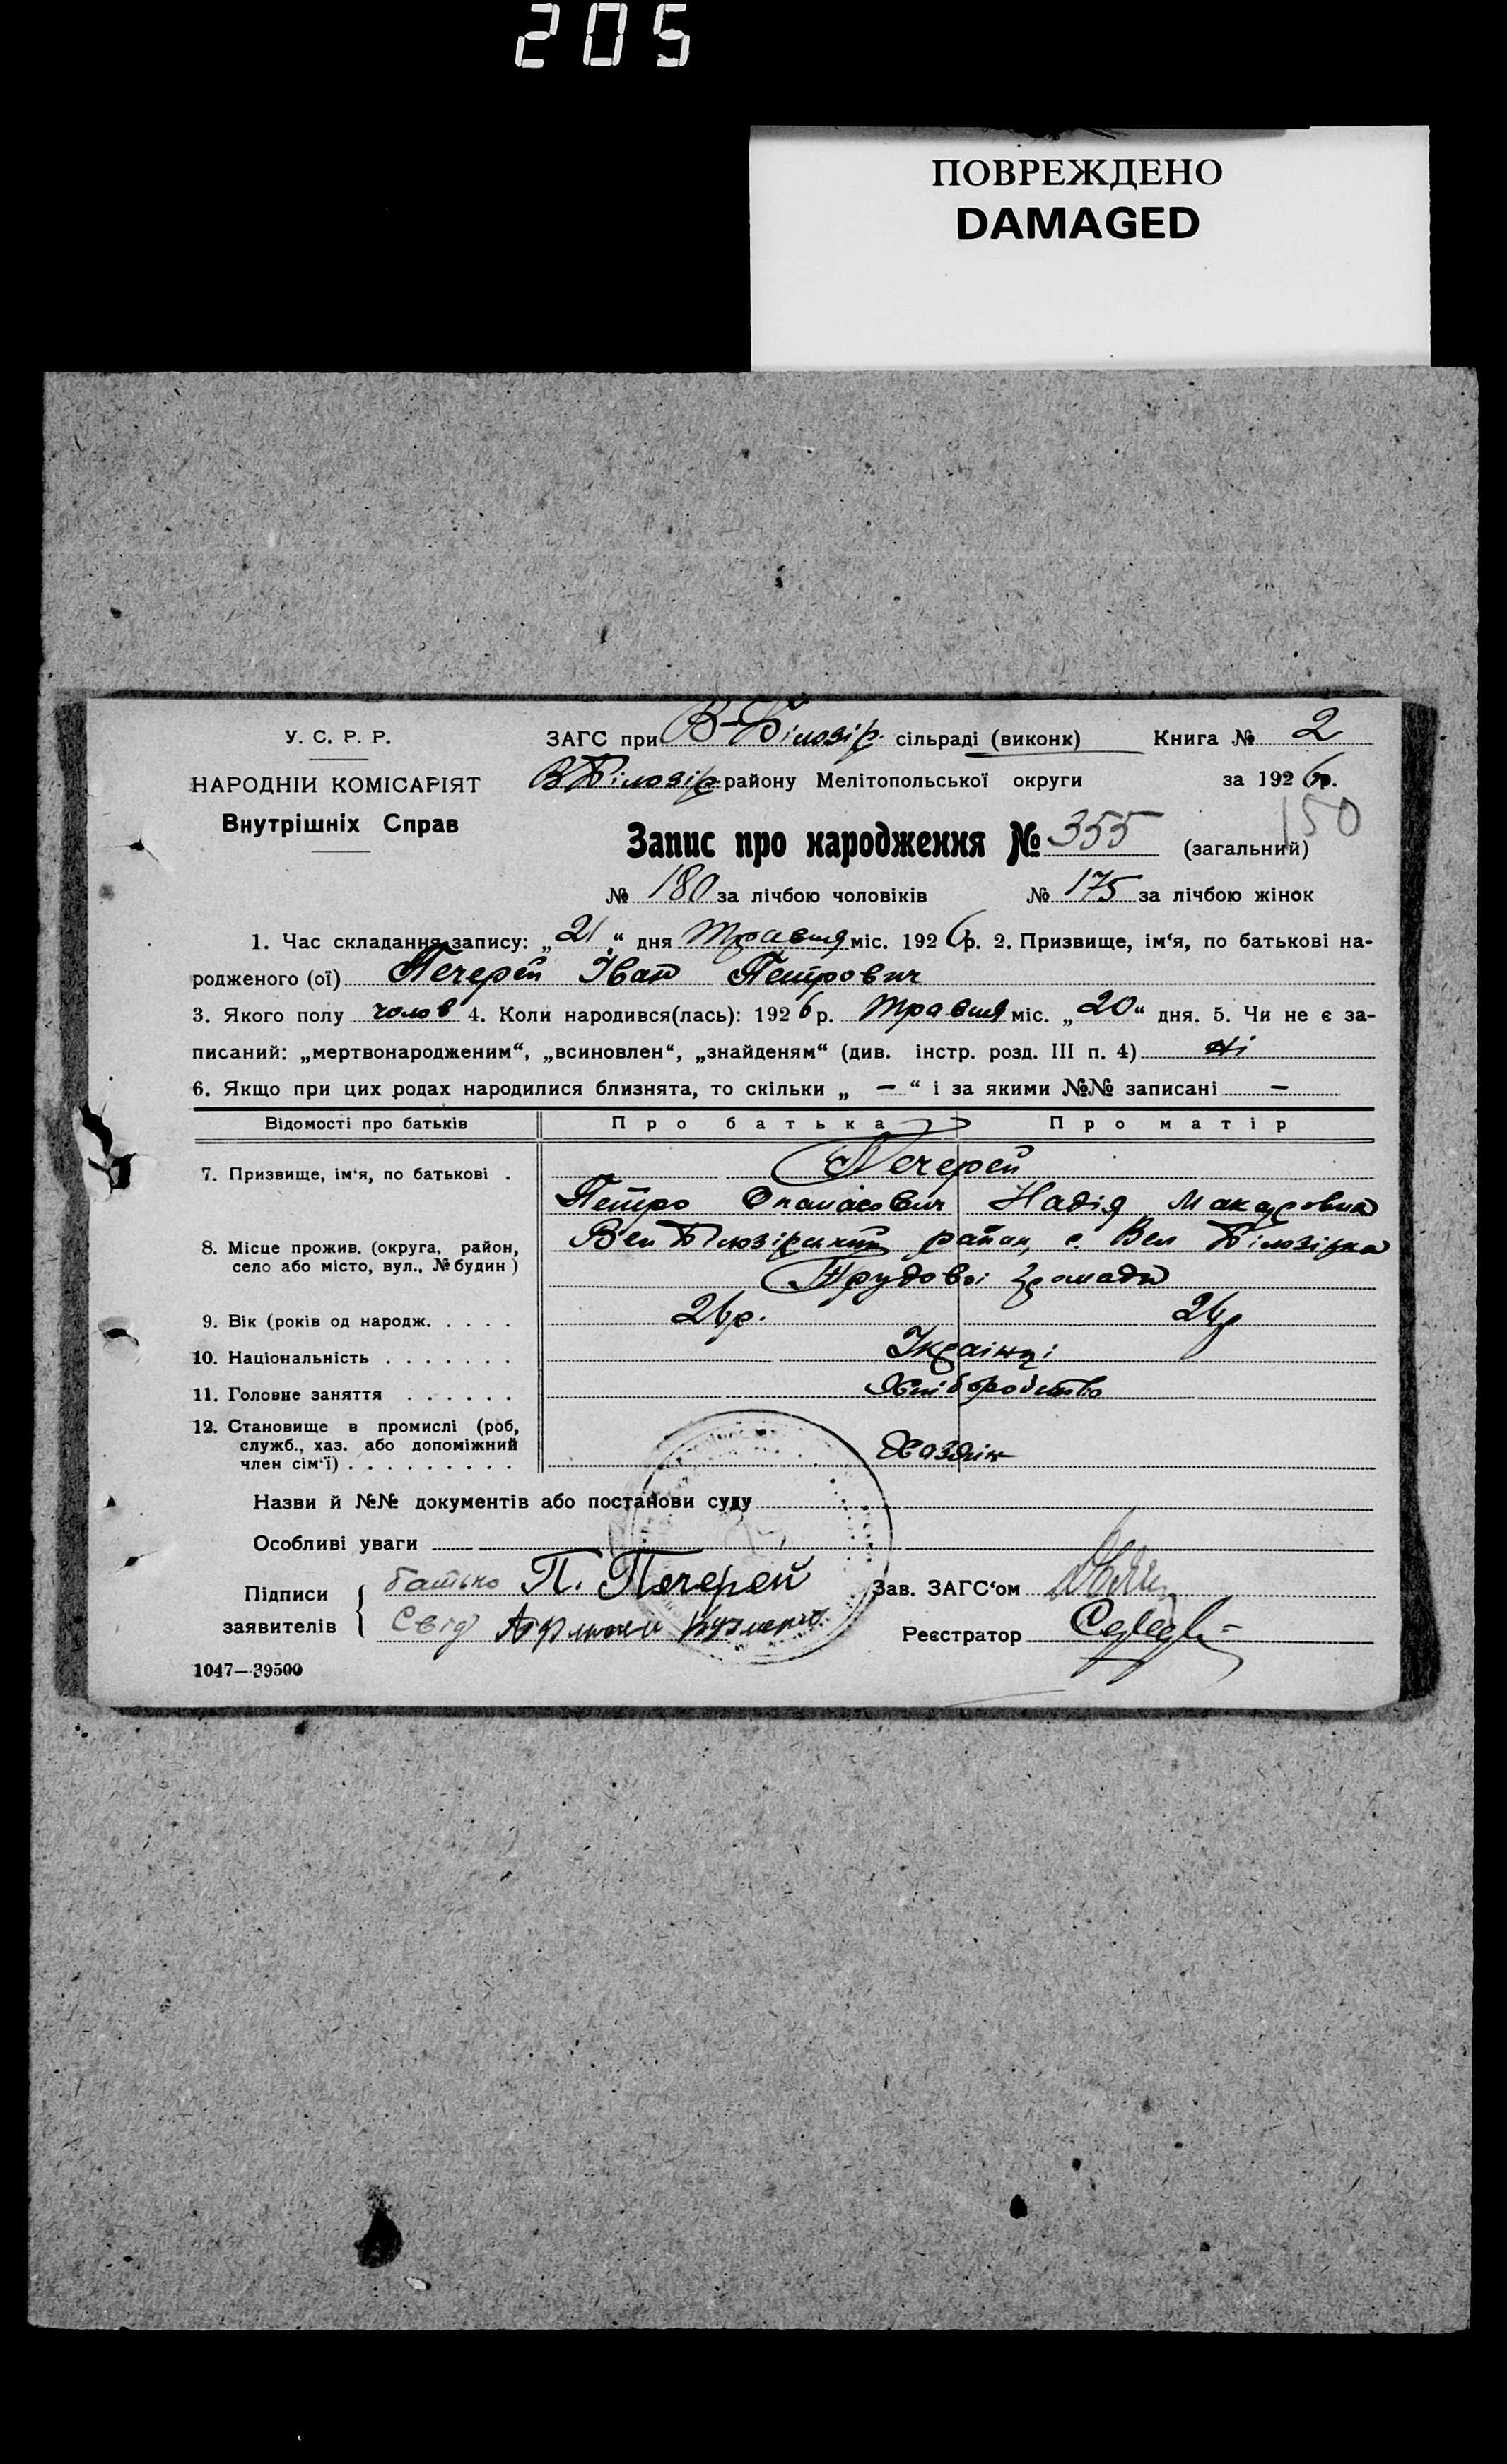 205
ПОВРЕЖДЕНО
DAMAGED
У. С. Р. Р.
НАРОДНІЙ КОМІСАРІЯТ
Внутрішніх Справ
ЗАГС при В-Білозір. сільраді (виконк) Книга № 2
В Білозір району Мелітопольської округи за 1926 р.
150
Запис про народження № 355 (загальний)
№ 180 за лічбою чоловіків № 175 за лічбою жінок
1. Час складання запису: „21“ дня Травня міс. 1926 р. 2. Призвище, ім‘я, по батькові на-
родженого (ої) Печерей Іван Петрович
3. Якого полу чолов 4. Коли народився(лась): 1926 р. Травня міс. „20“ дня. 5. Чи не є за-
писаний: „мертвонародженим“, „всиновлен“, „знайденям“ (див. інстр. розд. III п. 4) ні
6. Якщо при цих родах народилися близнята, то скільки „ — “ і за якими №№ записані —
Відомості про батьків Про батька Про матір
7. Призвище, ім‘я, по батькові . Печерей
Петро Опанасович Надія Макаровна
8. Місце прожив. (округа, район, село або місто, вул., № будин) Вел Білозірський район, с. Вел Білозірка
Трудової громади
9. Вік (років од народж. . . . . 26 р. 24 р
10. Національність . . . . . . . Українці
11. Головне заняття . . . . . . Хліборобство
12. Становище в промислі (роб,
служб., хаз. або допоміжний
член сім‘ї) . . . . . . . . . Хазяїн
Назви й №№ документів або постанови суду
Особливі уваги
Підписи заявителів батько П. Печерей Зав. ЗАГС‘ом
Свід Кузменко Реєстратор
1047—39500